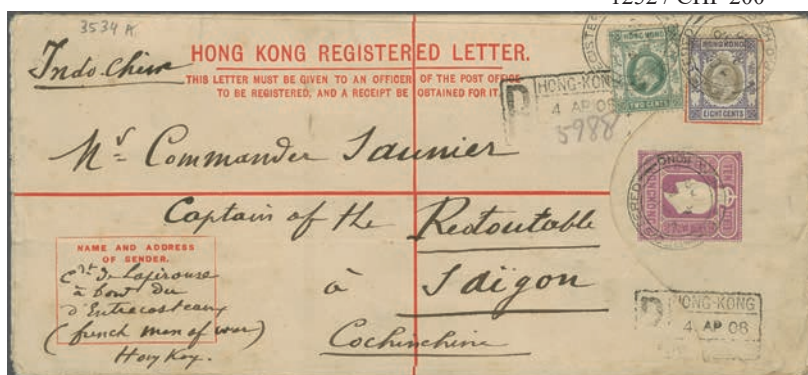 12527 CHF 200
3534 A
HONG KONG REGISTERED LETTER.
THIS LETTER MUST BE GIVEN TO AN OFFICER OF THE POST OFFICE
TO BE REGISTERED, AND A RECEIPT BE OBTAINED FOR IT.
Indo Chine
HONG KONG
TWO CENTS
HONGKONG
EIGHT CENTS
R HONG-KONG
4 AP 06
5988
Mr Commander Saunier
TEN CENTS
HONGKONG
REGISTERED
Captain of the Redoutable
à Saigon
Cochinchine
NAME AND ADDRESS
OF SENDER.
Ct de Lapirouse
à bord du
d'Entrecasteaux
(french man of war)
Hong Kong.
R HONG-KONG
4 AP 06